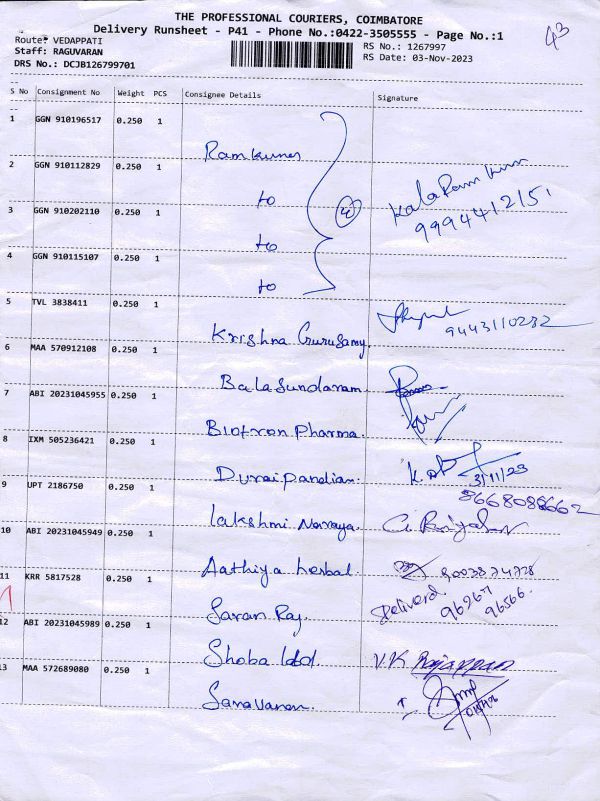 THE PROFESSIONAL COURIERS, COIMBATORE
43
Delivery Runsheet - P41 - Phone No.:0422-3505555 - Page No.:1
Route: VEDAPPATI
RS No.: 1267997
Staff: RAGUVARAN
RS Date: 03-Nov-2023
DRS No.: DCJB126799701
S No Consignment No Weight PCS Consignee Details Signature
1 GGN 910196517 0.250 1
Ramkumar
2 GGN 910112829 0.250 1
to 4 Kala Ram Kum
3 GGN 910202110 0.250 1
9994412151
to
4 GGN 910115107 0.250 1
to
5 TVL 3838411 0.250 1
Krishna Gurusamy 9443110232
6 MAA 570912108 0.250 1
Balasundaram
7 ABI 20231045955 0.250 1
Biotron Pharma.
8 IXM 505236421 0.250 1
Duraipandian. 3/11/23
9 UPT 2186750 0.250 1
8668088662
Lakshmi Naraya.
10 ABI 20231045949 0.250 1
Aathiya herbal 8003874728
11 KRR 5817528 0.250 1
Deliverd. 96267
96566.
Saran Raj.
12 ABI 20231045989 0.250 1
Shoba V.K Rajappan
13 MAA 572689080 0.250 1
Saravanan.